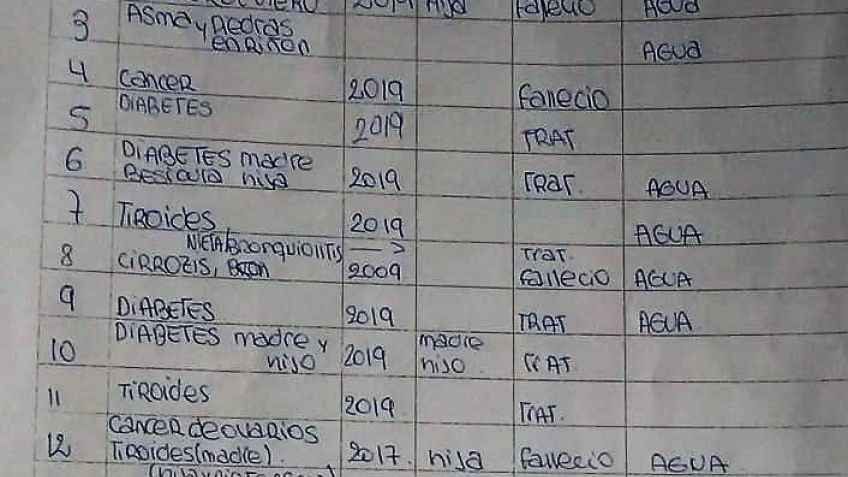 2019 Hija Fallecio AGUA
3 ASMA y PIEDRAS
en RIÑON AGUA
4 CANCER 2019 fallecio
5 DIABETES 2019 TRAT
6 DIABETES madre
hija 2019 TRAT. AGUA
7 TIROIDES 2019 AGUA
NIETA/Bronquiolitis Trat.
8 CIRROZIS, 2009 fallecio AGUA
9 DIABETES 2019 TRAT AGUA
10 DIABETES madre y
hijo 2019 madre
hijo. TRAT
11 TIROIDES 2019 TRAT.
12 CANCER de ovarios
TIROIDES (madre). 2017. hija fallecio AGUA